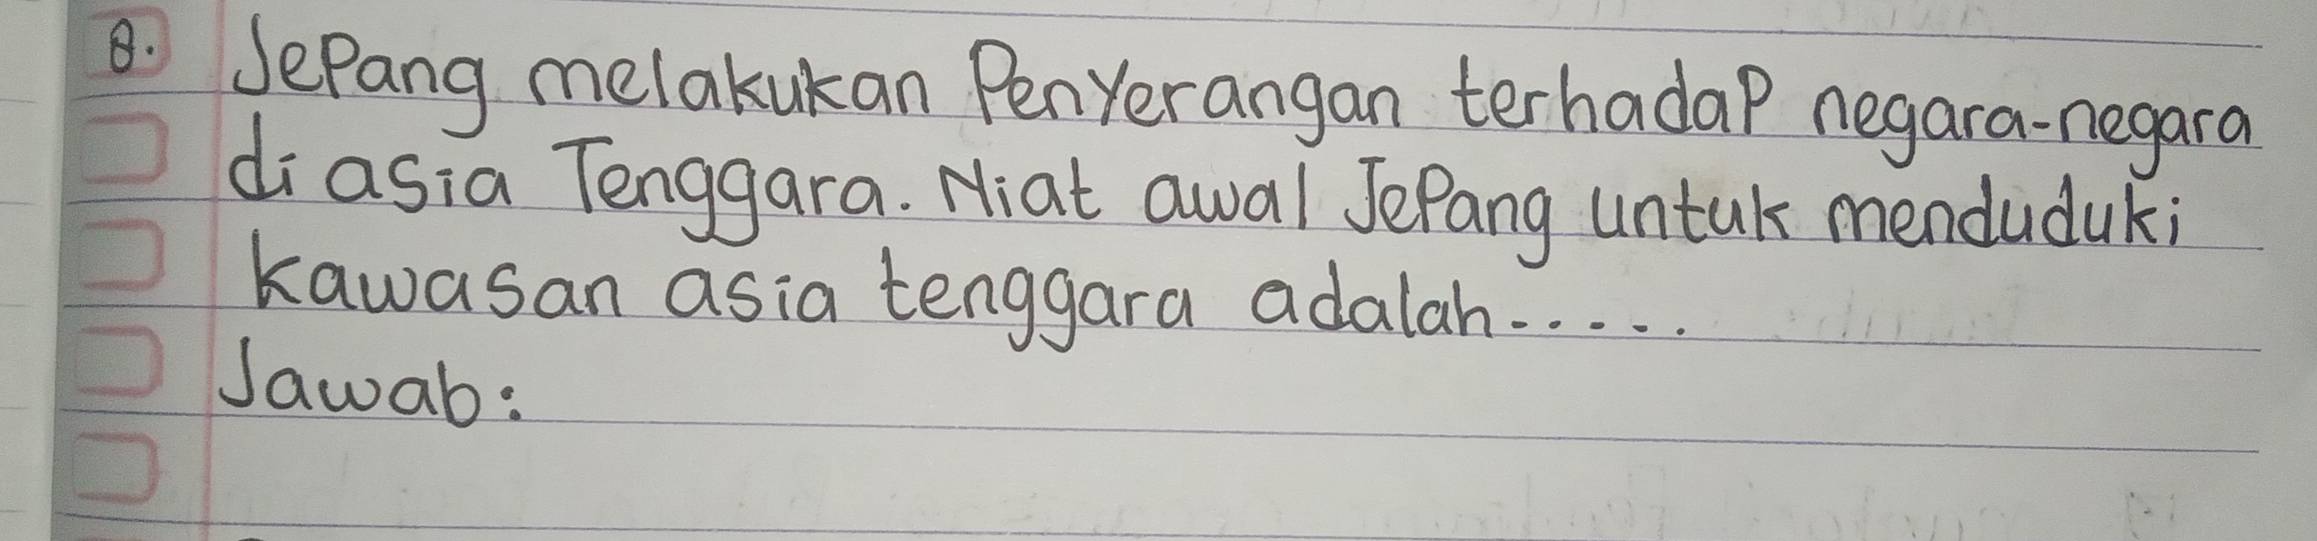 8. Jepang melakukan Penyerangan terhadap negara-negara
di asia Tenggara. Niat awal Jepang untuk menduduki
kawasan asia tenggara adalah......
Jawab: